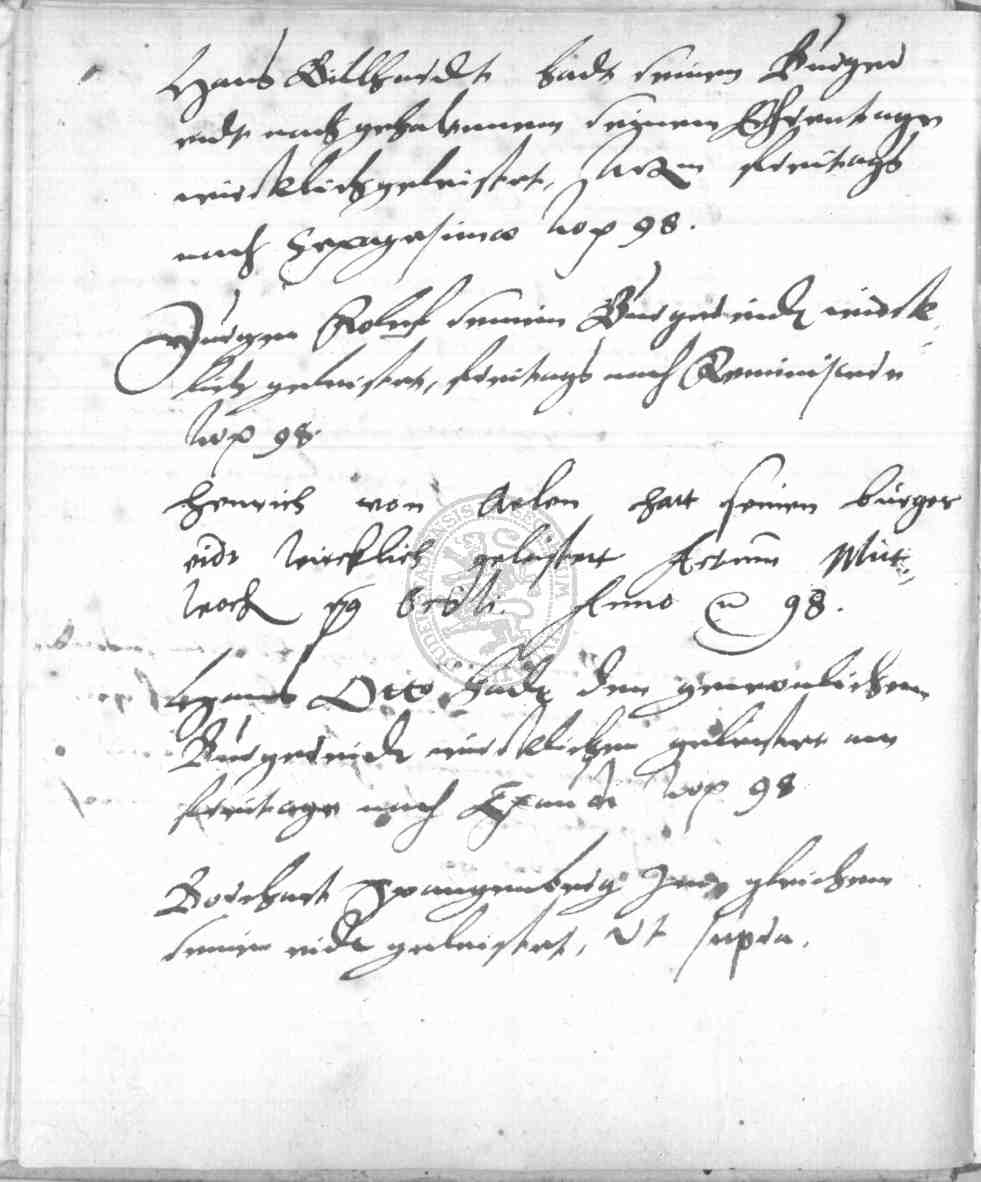 Hans Billhardt hadt seinen Burger
eidt nach gehaltenem seinem Ehrentage
wircklich geleistet, freitags
nach Sexagesimae 98.
Jurgen Rolef seinen Burgereidt wirck-
lich geleistet, freitags nach Reminiscere
98.
Henrich von Aelen hatt seinen bürger
eidt wircklich geleistett Actum Mit-
woch Anno 98.
Otto hadt den gewonlichen
Burgereidt wircklichen geleistet am
freitage nach Exaudi 98
Borchart Spangenberg gleichem
seinen eidt geleistet, Ut supra.